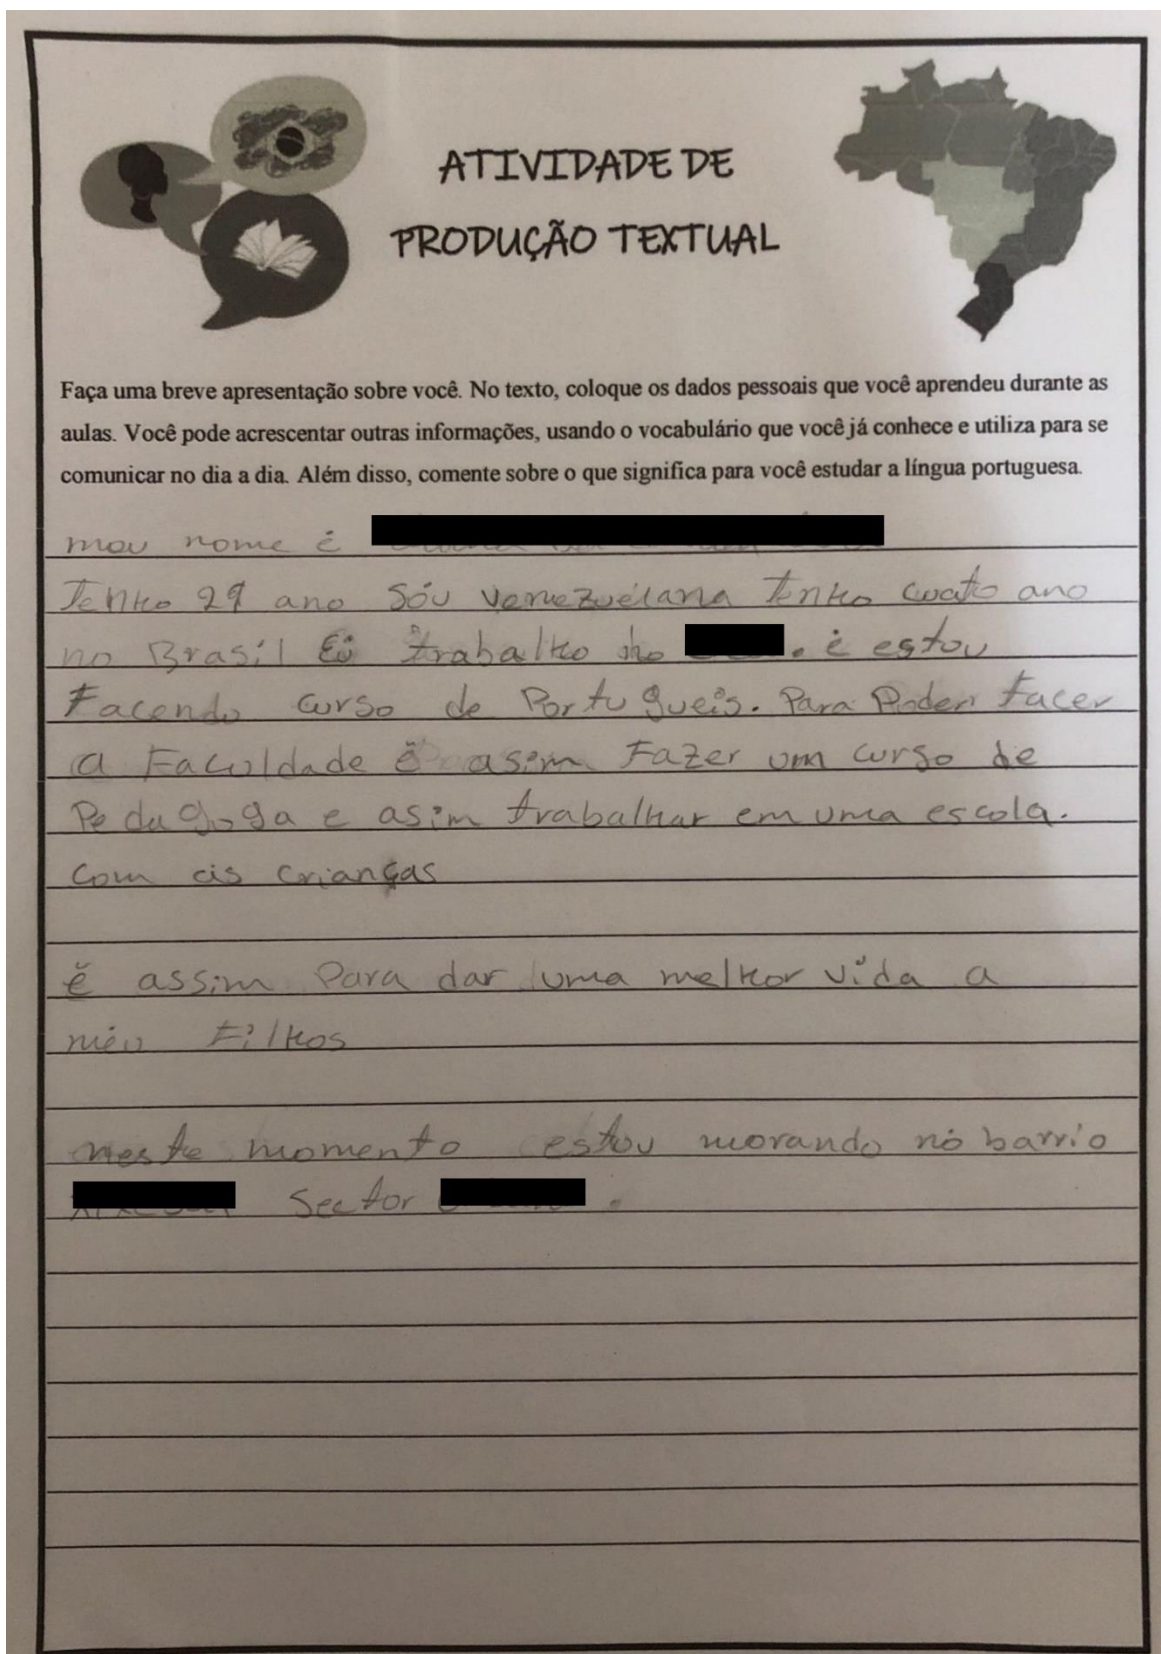 ATIVIDADE DE
PRODUÇÃO TEXTUAL
Faça uma breve apresentação sobre você. No texto, coloque os dados pessoais que você aprendeu durante as
aulas. Você pode acrescentar outras informações, usando o vocabulário que você já conhece e utiliza para se
comunicar no dia a dia. Além disso, comente sobre o que significa para você estudar a língua portuguesa.
mou nome é
Tenho 29 ano Sóu Venezuélana Tenho cuato ano
no Brasil Eu trabalho no . é estou
Facendo curso de Portugueis. Para Poder Facer
a Faculdade ë asim Fazer um curso de
Pedagoga e asim trabalhar em uma escola.
Com as crianças
ë assim Para dar uma melhor vida a
méu Filhos
neste momento estou morando nó barrio
Sector .